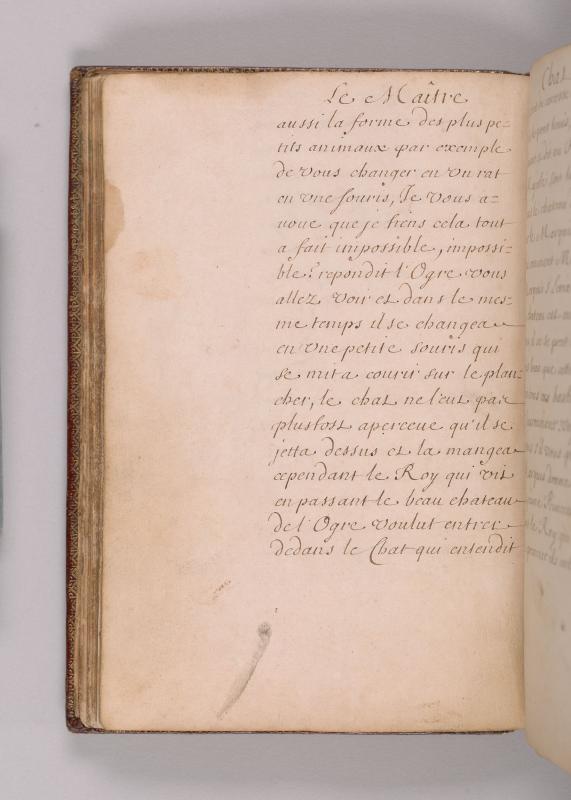 Le Maître
aussi la forme des plus pe=
tits animaux par exemple
de vous changer en vn rat
en vne souris, Je vous a=
uoue que je tiens cela tout
a fait impossible, impossi=
ble? repondit l'Ogre vous
allez voir et dans le mes=
me temps il se changea
en vne petite souris qui
se mit a courir sur le plan=
cher, le chat ne l'eut pas
plustost aperceue qu'il se
jetta dessus et la mangea
cependant le Roy qui vit
en passant le beau chateau
de l'Ogre voulut entrer
dedans le Chat qui entendit
Chat